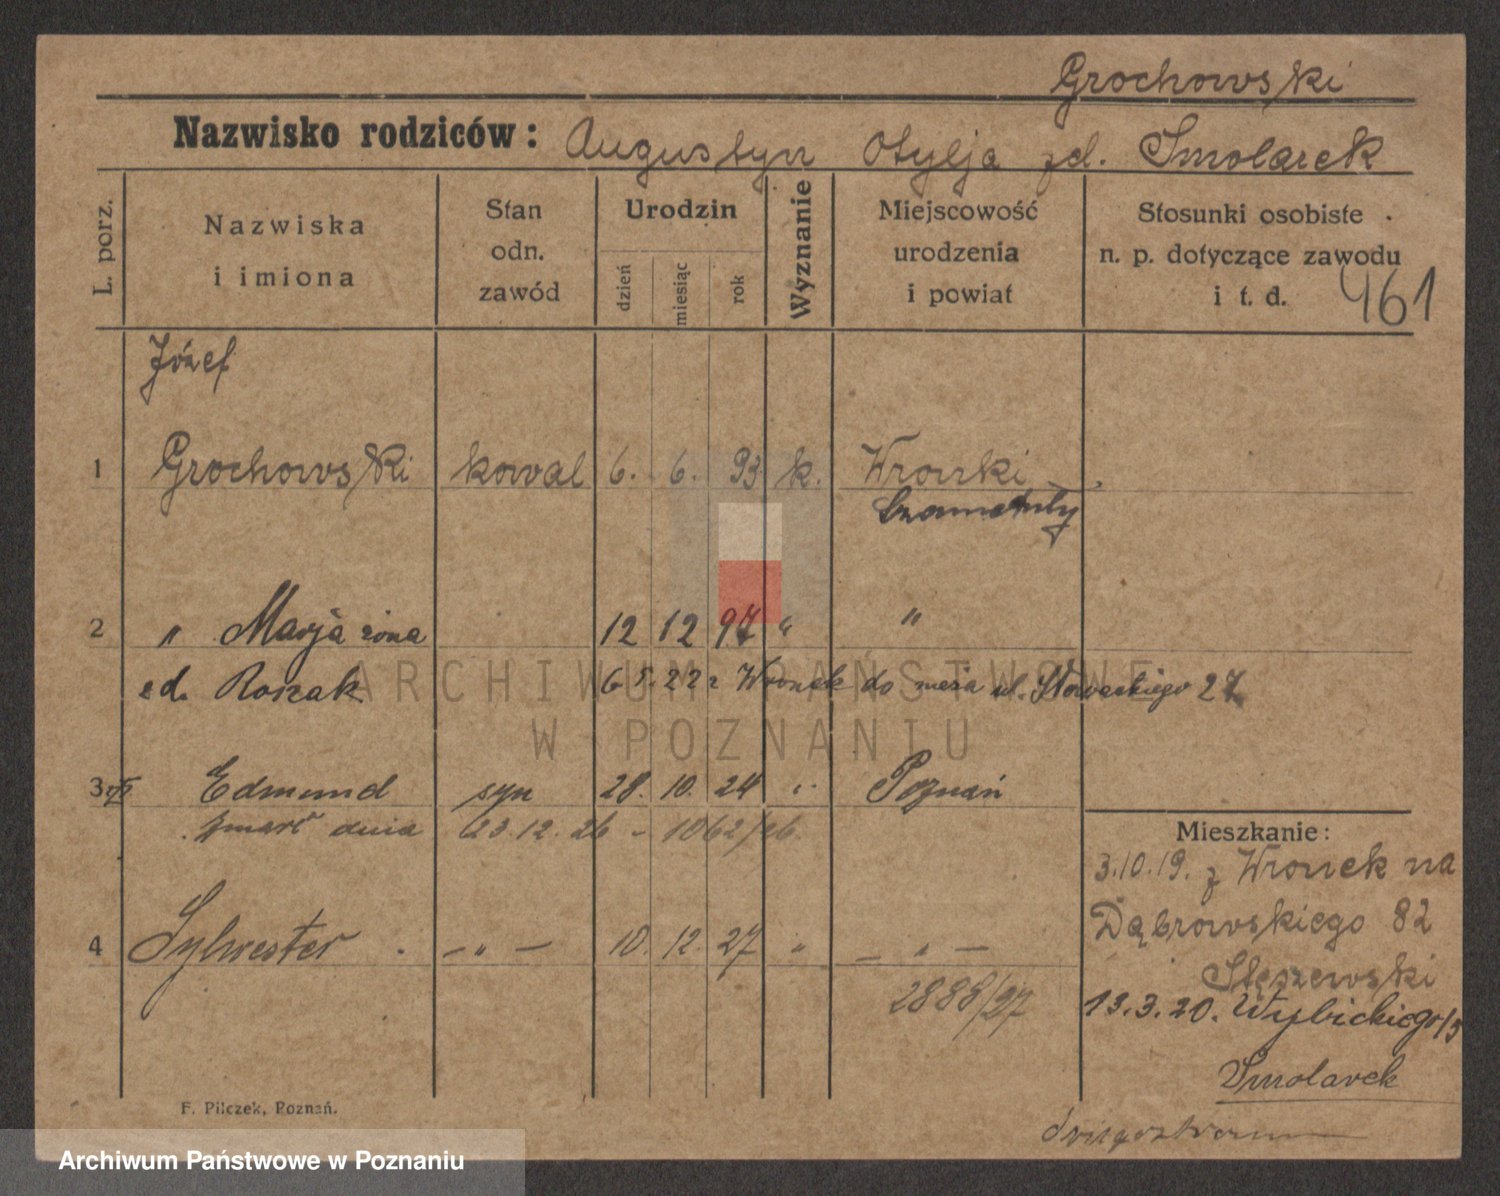 Grochowski
Nazwisko rodziców: Augustyn Otylja zd. Smolarek
L. porz.
Nazwiska
i imiona
Stan
odn.
zawód
Urodzin
dzień
miesiąc
rok
Wyznanie
Miejscowość
urodzenia
i powiat
Stosunki osobiste
n. p. dotyczące zawodu
i t. d.
461
Józef
1 Grochowski kowal 6. 6. 93 k. Wronki
Szamotuły
2 " Marja żona 12 12 97 " "
zd. Roszak 6 5. 22 z Wronek do męża ul. Słowackiego 27
3 Edmund syn 28. 10. 24 " Poznań
zmarł dnia 23.12.26 - 1062/26.
4 Sylwester - " - 10. 12. 27 " - " -
2888/27
Mieszkanie:
3.10.19. z Wronek na
Dąbrowskiego 82
Stęszewski
13.3.20. Wybickiego
Smolarek
F. Pilczek, Poznań.
ARCHIWUM PAŃSTWOWE
W POZNANIU
Archiwum Państwowe w Poznaniu